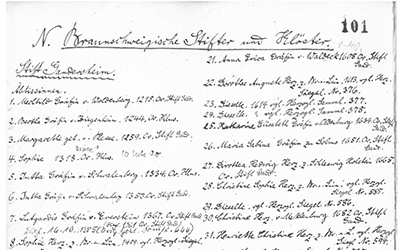 101
N. Braunschweigische Stifter und Klöster.
Stift Gandersheim.
Äbtissinnen.
1. Mechtild Gräfin v. Woldenberg, 1215. Or. Stift Gand.
2. Bertha Gräfin v. Ziegenhain, 1244. Or. Plus.
3. Margarethe gel. v. Plesse, 1259. Or. Stift Gand.
4. Sophie 1313. Or. Plus.
5. Jutta Gräfin v. Schwalenberg, 1334. Or. Plus.
6. Jutta Gräfin v. Schwalenberg, 1353. Or. Stift Gand.
7. Lutgardis Gräfin v. Everstein 1367. Or. Stift Gand.
8. Sophie Herz. z. Br. u. Lün., 1409. vgl. Herzgl. Siegel
21. Anna Erica Gräfin v. Waldeck 1605 Or. Stift Gand.
22. Dorothee Auguste Herz. z. Br. u. Lün. 1613. vgl. Herz. Siegel No. 376.
23. Dieselbe. 1614 vgl. Herzogl. Samml. 377.
24. Dieselbe. vgl. Herzogl. Samml. 378.
25. Katharine Elisabeth Gräfin v. Oldenburg 1644 Or. Stift Gand.
26. Maria Sabine Gräfin zu Solms 1651. Or. Stift Gand.
27. Dorothee Hedwig Herz. z. Schleswig Holstein 1665. Or. Stift Gand.
28. Christine Sophie Herz. z. Br. u. Lün. vgl. Herzgl. Siegel No. 585.
29. Dieselbe. vgl. Herzgl. Siegel No. 586.
30. Christine Herz. v. Mecklenburg 1682 Or. Stift Gand.
31. Henriette Christine Herz. z. Br. u. Lün. vgl. Herzgl. Siegel No. 594.